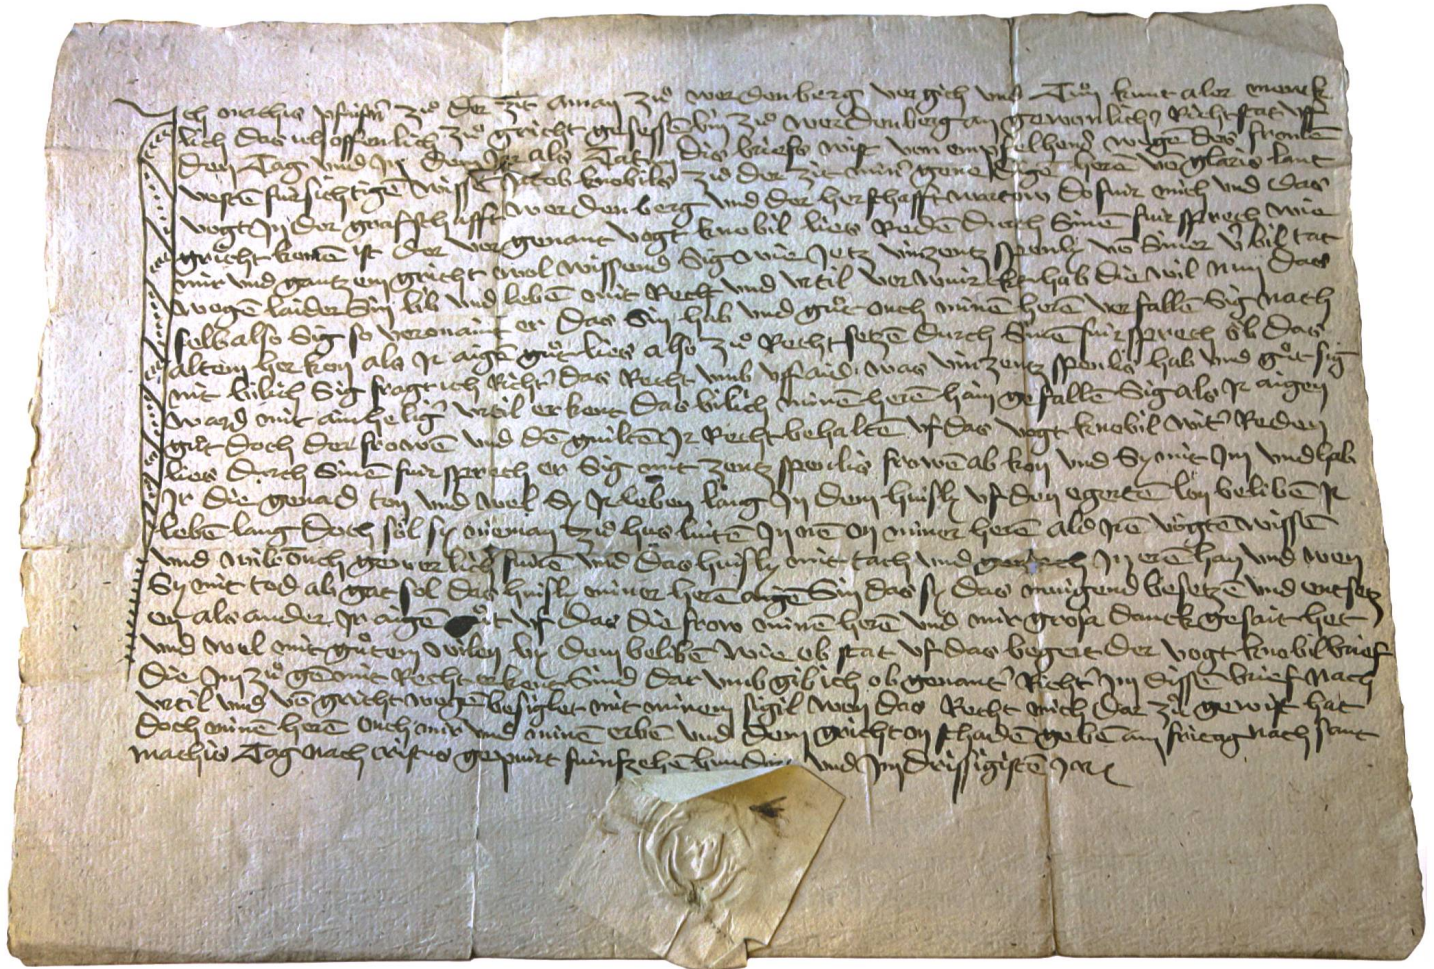 Ich mathis pfiffer zů der Zit aman zů werdenberg vergich und Tůn kunt aler menck
lich das ich offenlich zů gricht gesessen bin zů werdenberg an gewonlicher Richtstat uff
den Tag und Jn dem Jar als Datum dis briefs wist von empfelhens wegen des fromen
vesten fürsichtigen wissen Jacob knobils zů der zit miner genedigen heren vo glaris lant
vogt Jn der grafschafft werdenberg und der herschafft wartow do fuir mich und das
gricht komen ist der vorgenant vogt knobil lies Reden durch Sinen fuirsprech wie
mir und gantzem gricht wol wissend Sig wie Jetz vinzentz spenly vo Siner übiltat
wegen laider Sin lib und leben mit Recht und urtil verwuirckt hab die wil nun das
selb also Sig so vermaint er das Sin hab und gůt ouch minen heren verfallen Sig nach
altem herkon als Jr aigen gůt lies also zů Recht setzen durch Sinen fuirsprech ob das
nit bilich Sig fragt ich Richter das Recht umb uff aid was vinzentz spenlis hab und gůt sig
ward mit ainheliger urtil erkent das bilich minen heren haim gefallen Sig als Jr aigen
gůt doch der frowen und den guilten Jr Recht behalten uf das vogt knobil witer Reden
lies durch Sinen fuirsprech er Sig mit zentz spenlis frowen ab kon und Sy mit Jm und hab
Jr die genad ton und wel Sy Jr leben lang Jn dem huisly uf den egerten lon beliben Jr
leben lang doch sol sy nieman zů hus luiten Jn nen on miner heren ald Jren vögten wissen
und wil ouch gewerlich fuiren und das huisly mit tach und gemach Jn eren han und wen
Sy mit tod ab gat sol das huisly miner heren aigen Sin das sy das muigend besetzen und entsetz
en als ander Jr aigen gůt uf das die frow minen heren und mir gross danck gesait het
und wel mit gůtem wilen by dem beliben wie ob stat uf das begert der vogt knobil brief
die Jm zů gen mit Recht erkent Sind dar umb gib ich obgenanter Richter Jm dissen brief nach
urtil und vo gricht wegen besiglet mit minem sigil wen das Recht mich dar zů gewist hat
doch minen heren ouch mir und minen erben und dem gricht on schaden geben am fritag nach sant
mathis Tag nach cristus gepuirt fuinfzehenhundert und Jm drissigisten Jar